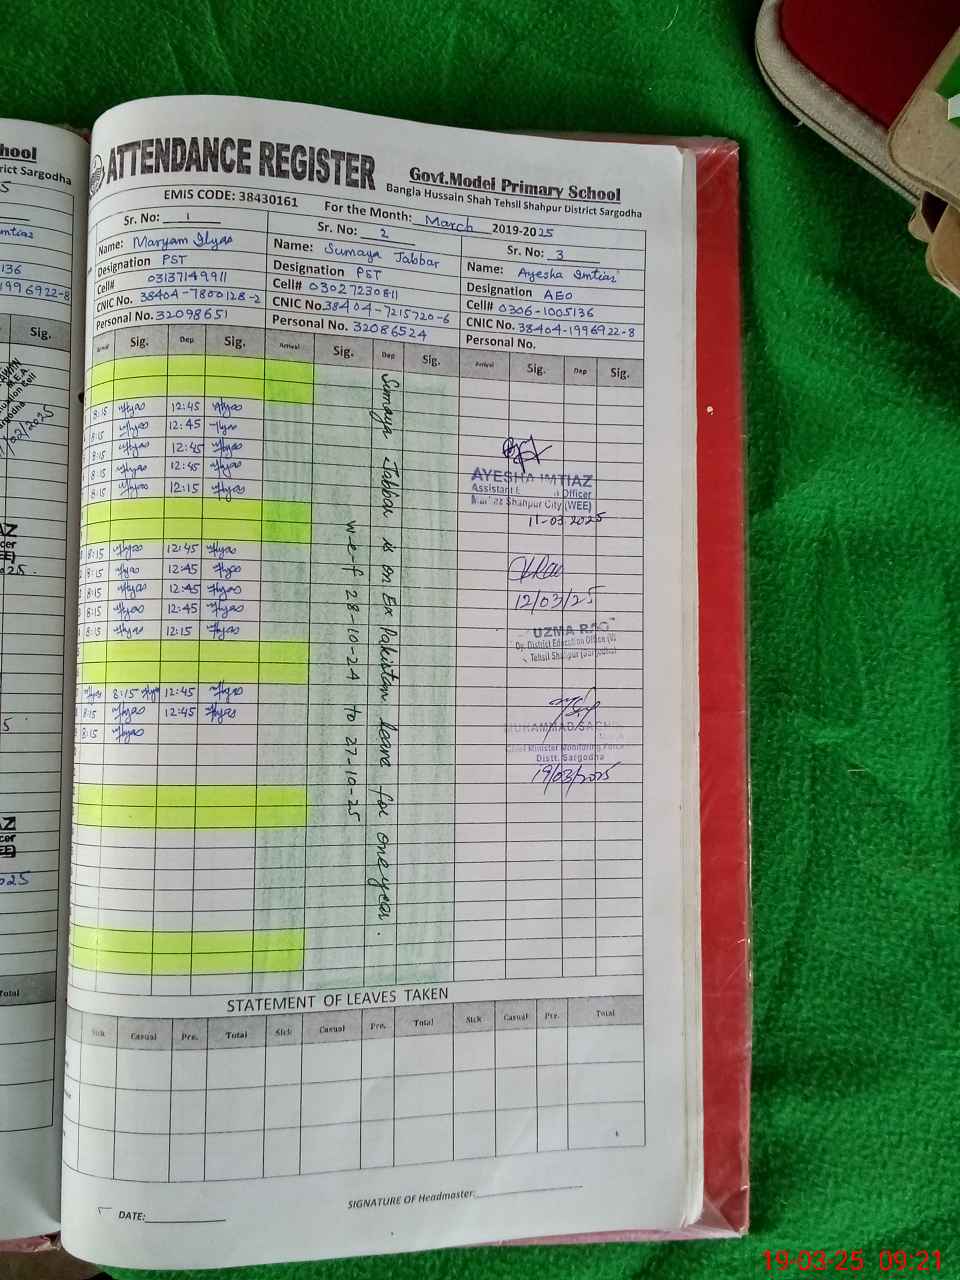 hool
rict Sargodha
ATTENDANCE REGISTER
Govt.Model Primary School
Bangla Hussain Shah Tehsil Shahpur District Sargodha
EMIS CODE: 38430161
For the Month: March 2019-2025
Sr. No: 1
Sr. No: 2
Sr. No: 3
Name: Maryam Ilyas
Name: Sumaya Jabbar
Name: Ayesha Imtiaz
Designation PST
Designation PST
Designation AEO
Cell# 03137149911
Cell# 03027230811
Cell# 0306-1005136
CNIC No. 38404-7800128-2
CNIC No. 38404-7215720-6
CNIC No. 38404-1996922-8
Personal No. 32098651
Personal No. 32086524
Personal No.
136
1996922-8
Sig.
Arrival Sig. Dep Sig. Arrival Sig. Dep Sig. Arrival Sig. Dep Sig.
8:15 Ilyas 12:45 Ilyas
8:15 Ilyas 12:45 Ilyas
8:15 Ilyas 12:45 Ilyas
8:15 Ilyas 12:45 Ilyas
8:15 Ilyas 12:15 Ilyas
8:15 Ilyas 12:45 Ilyas
8:15 Ilyas 12:45 Ilyas
8:15 Ilyas 12:45 Ilyas
8:15 Ilyas 12:45 Ilyas
8:15 Ilyas 12:15 Ilyas
Ilyas 8:15 Ilyas 12:45 Ilyas
8:15 Ilyas 12:45 Ilyas
8:15 Ilyas
Sumaya Jabbar is on Ex Pakistan leave for one year.
w-e-f 28-10-24 to 27-10-25
AYESHA IMTIAZ
Assistant Officer
Shahpur City (WEE)
11-03-2025
12/03/25
UZMA RAO
Dy. District Education Officer
Tehsil Shahpur (Sargodha)
MUHAMMAD
Chief Minister Monitoring Force
Distt. Sargodha
19/03/2025
STATEMENT OF LEAVES TAKEN
Total
Sick Casual Pre. Total Sick Casual Pre. Total Sick Casual Pre. Total
SIGNATURE OF Headmaster:
DATE:
19-03-25 09:21